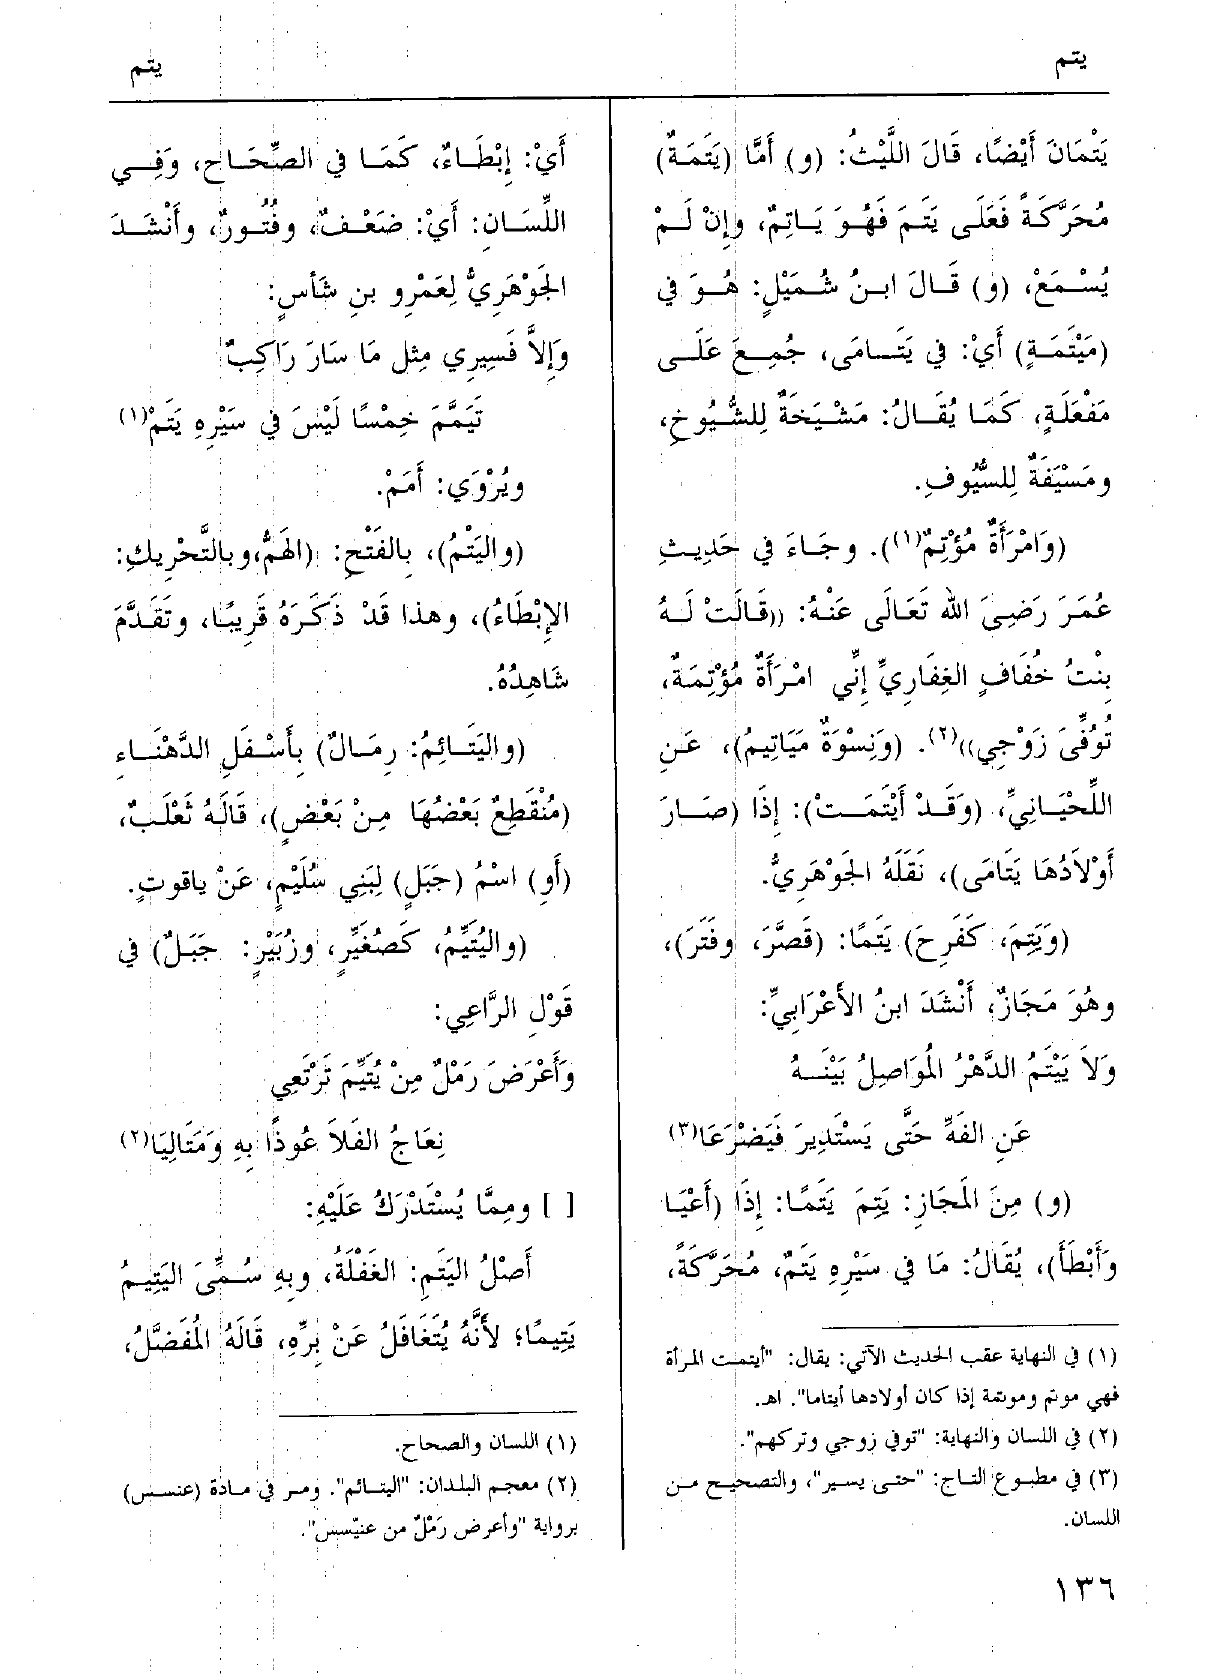 يتم
يتم
يَتْمَانَ أَيْضًا، قَالَ اللَّيْثُ: (و) أَمَّا (يَتَمَةٌ)
مُحَرَّكَةً فَعَلَى يَتَمَ فَهُوَ يَاتِمٌ، وإِنْ لَمْ
يُسْمَعْ، (و) قَالَ ابنُ شُمَيْلٍ: هُوَ في
(مَيْتَمَةٍ) أَيْ: في يَتَامَى، جُمِعَ عَلَى
مَفْعَلَةٍ، كَمَا يُقَالُ: مَشْيَخَةٌ لِلشُّيُوخِ،
ومَسْيَفَةٌ لِلسُّيُوفِ.
(وَامْرَأَةٌ مُؤْتِمٌ(١)). وجَاءَ في حَدِيثِ
عُمَرَ رَضِيَ الله تَعَالَى عَنْهُ: ((قَالَتْ لَهُ
بِنْتُ خُفَافٍ الغِفَارِيِّ إِنِّي امْرَأَةٌ مُؤْتِمَةٌ،
تُوُفِّيَ زَوْجِي))(٢). (وَنِسْوَةٌ مَيَاتِيمُ)، عَنِ
اللِّحْيَانِيِّ، (وَقَدْ أَيْتَمَتْ): إِذَا (صَارَ
أَوْلاَدُهَا يَتَامَى)، نَقَلَهُ الجَوْهَرِيُّ.
(وَيَتِمَ، كَفَرِحَ) يَتَمًا: (قَصَّرَ، وفَتَرَ)،
وهُوَ مَجَازٌ، أَنْشَدَ ابنُ الأَعْرَابِيِّ:
وَلاَ يَيْتَمُ الدَّهْرُ المُوَاصِلُ بَيْنَهُ
عَنِ الفَهِّ حَتَّى يَسْتَدِيرَ فَيَضْرَعَا(٣)
(و) مِنَ المَجَازِ: يَتِمَ يَتَمًا: إِذَا (أَعْيَا
وَأَبْطَأَ)، يُقَالُ: مَا في سَيْرِهِ يَتَمٌ، مُحَرَّكَةً،
(١) في النهاية عقب الحديث الآتي: يقال: "أيتمت المرأة
فهي موتم وموتمة إذا كان أولادها أيتاما". اهـ.
(٢) في اللسان والنهاية: "توفي زوجي وتركهم".
(٣) في مطبوع التاج: "حتى يسير"، والتصحيح من
اللسان.
١٣٦
أَيْ: إِبْطَاءٌ، كَمَا في الصِّحَاحِ، وَفِي
اللِّسَانِ: أَيْ: ضَعْفٌ، وفُتُورٌ، وأَنْشَدَ
الجَوْهَرِيُّ لِعَمْرِو بنِ شَأسٍ:
وَإِلاَّ فَسِيرِي مِثل مَا سَارَ رَاكِبٌ
تَيَمَّمَ خِمْسًا لَيْسَ في سَيْرِهِ يَتَمْ(١)
ويُرْوَي: أَمَمْ.
(واليَتْمُ)، بِالفَتْحِ: (الهَمُّ،وبالتَّحْرِيكِ:
الإِبْطَاءُ)، وهذا قَدْ ذَكَرَهُ قَرِيبًا، وتَقَدَّمَ
شَاهِدُهُ.
(واليَتَائِمُ: رِمَالٌ) بِأَسْفَلِ الدَّهْنَاءِ
(مُنْقَطِعٌ بَعْضُهَا مِنْ بَعْضٍ)، قَالَهُ ثَعْلَبٌ،
(أَو) اسْمُ (جَبَلٍ) لِبَنِي سُلَيْمٍ، عَنْ ياقوتٍ.
(واليُتَيِّمُ، كَصُغَيِّرٍ، وزُبَيْرٍ: جَبَلٌ) في
قَوْلِ الرَّاعِي:
وَأَعْرَضَ رَمْلٌ مِنْ يُتَيِّمَ تَرْتَعِي
نِعَاجُ الفَلاَ عُوذًا بِهِ وَمَتَالِيَا(٢)
[ ] ومِمَّا يُسْتَدْرَكُ عَلَيْهِ:
أَصْلُ اليَتَمِ: الغَفْلَةُ، وبِهِ سُمِّيَ اليَتِيمُ
يَتِيمًا؛ لأَنَّهُ يُتَغَافَلُ عَنْ بِرِّهِ، قَالَهُ المُفَضَّلُ،
(١) اللسان والصحاح.
(٢) معجم البلدان: "اليتائم". ومر في مادة (عنسس)
برواية "وأعرض رَمْلٌ من عنيّسس".